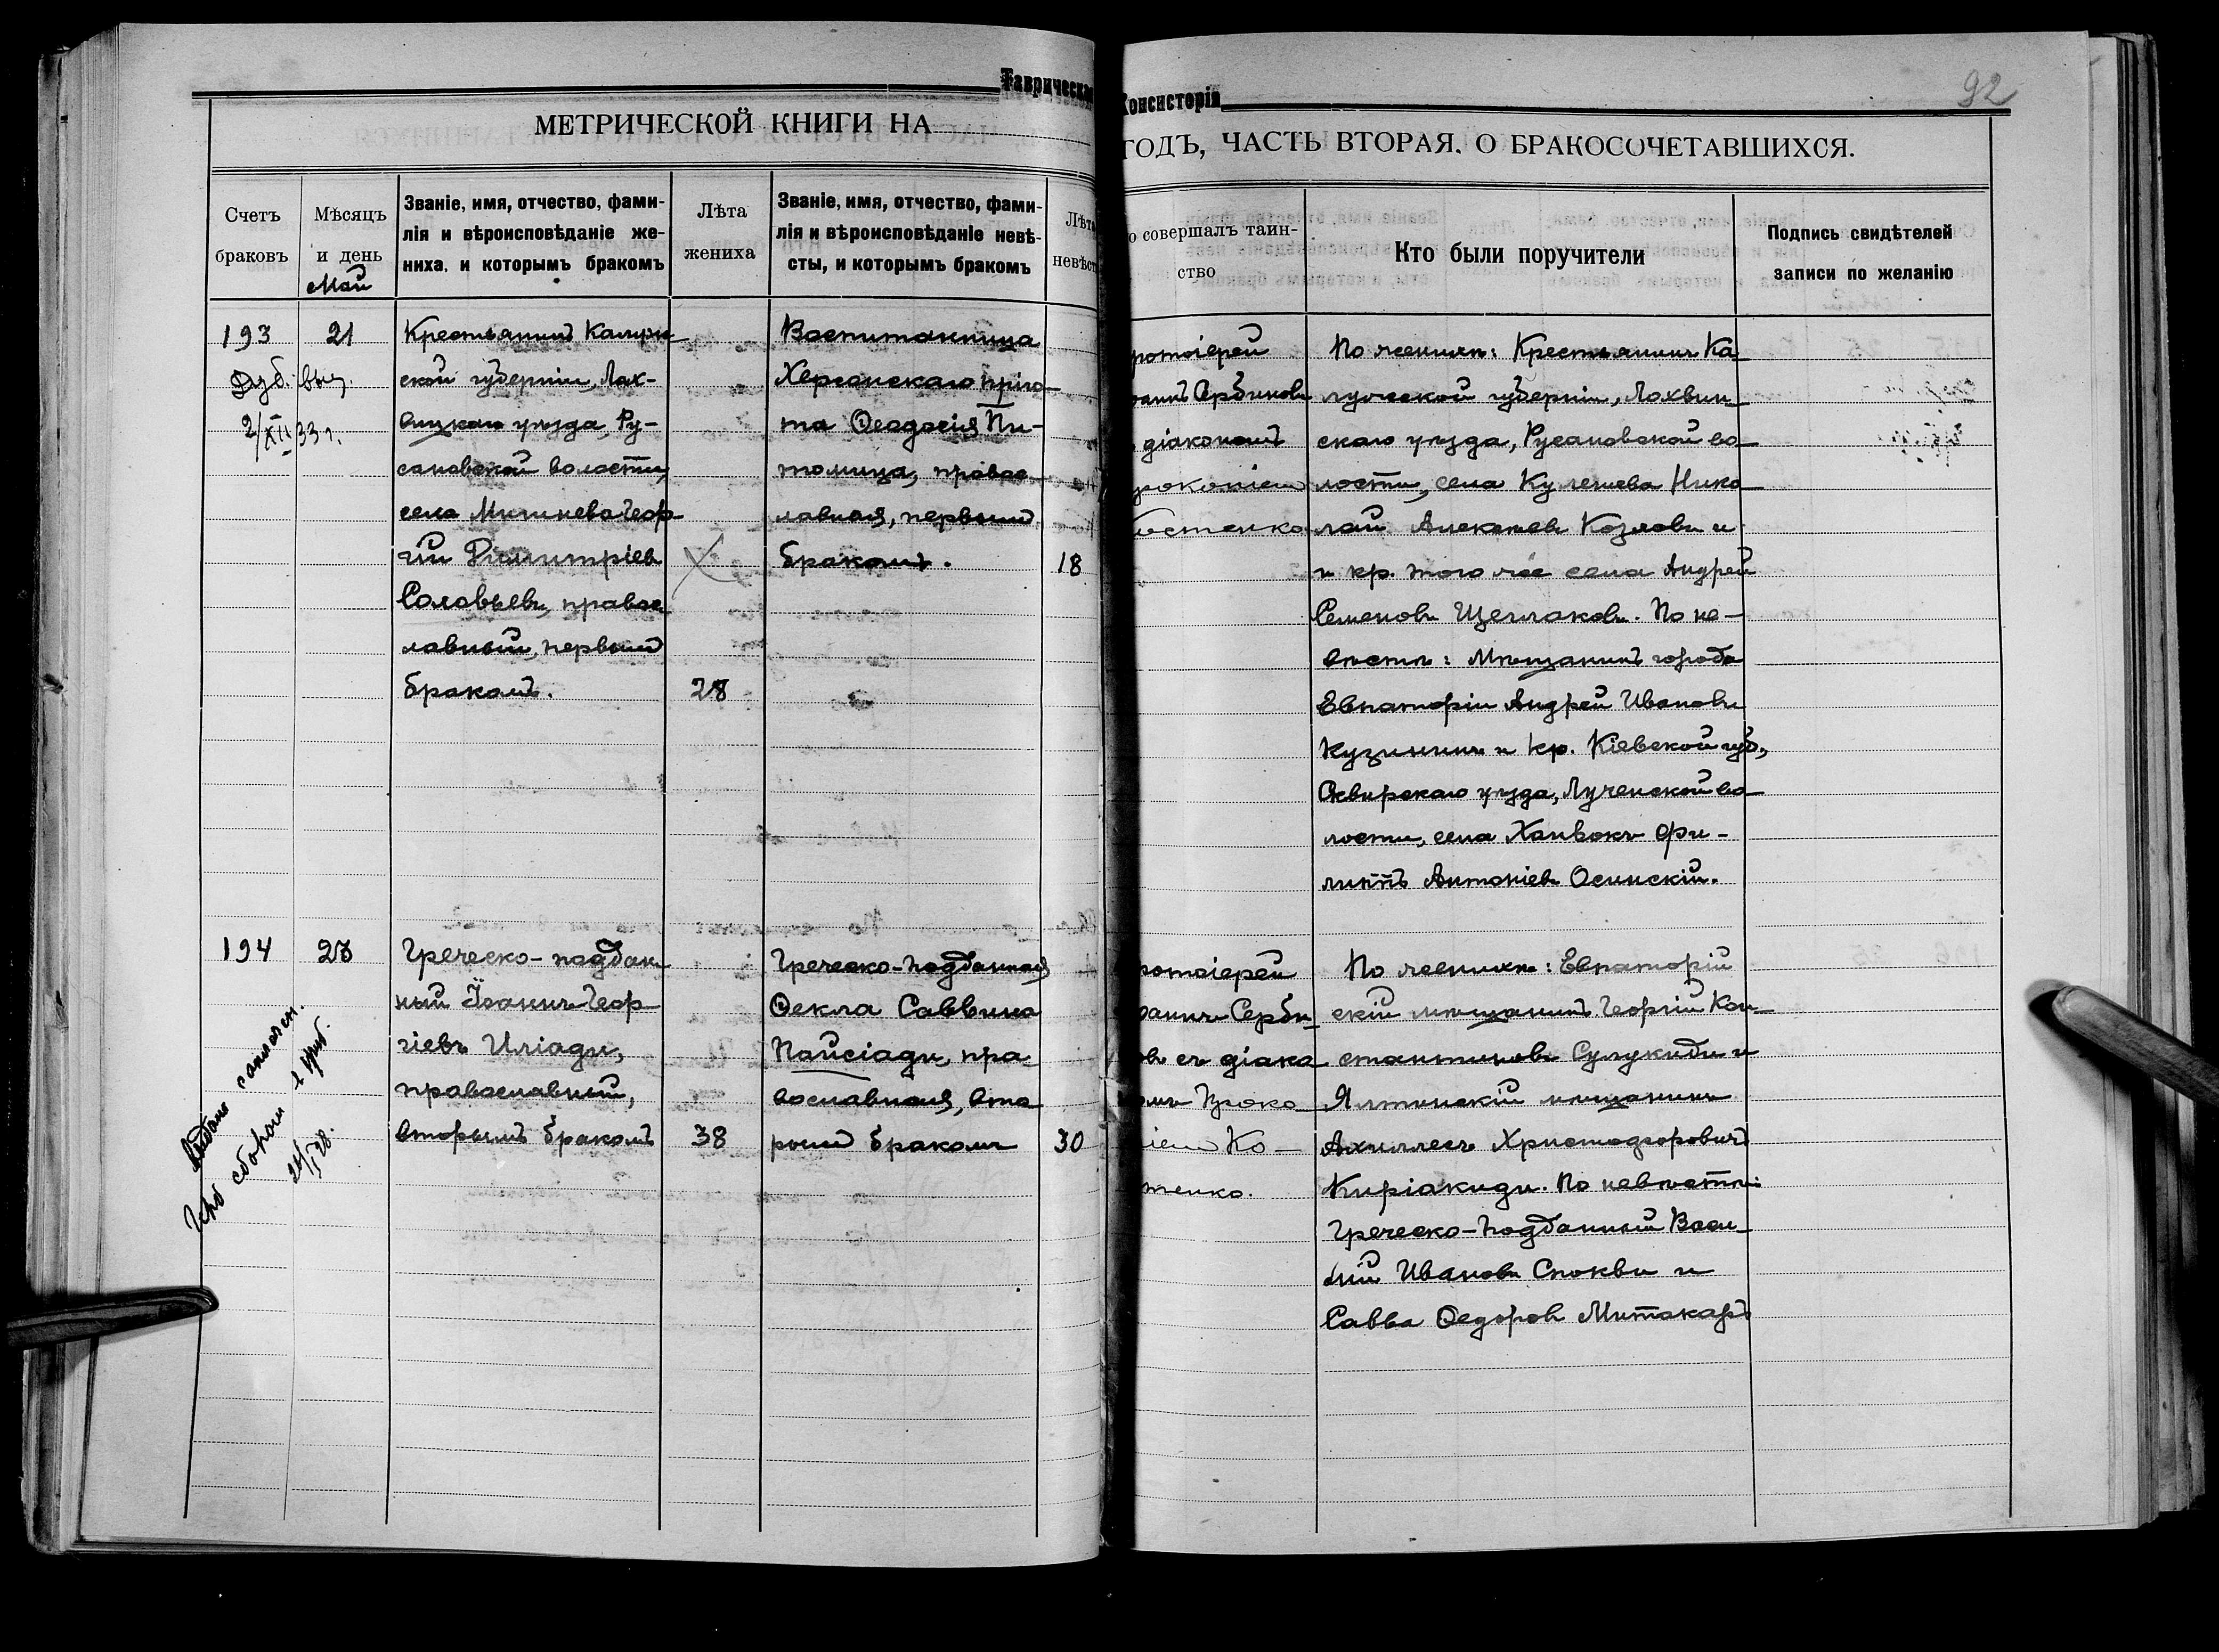 Таврическо
Консисторіи
92
МЕТРИЧЕСКОЙ КНИГИ НА
ГОДЪ, ЧАСТЬ ВТОРАЯ. О БРАКОСОЧЕТАВШИХСЯ.
Счетъ браковъ
Мѣсяцъ и день
Май
Званіе, имя, отчество, фами-
лія и вѣроисповѣданіе же-
ниха, и которымъ бракомъ
Лѣта
жениха
Званіе, имя, отчество, фами-
лія и вѣроисповѣданіе невѣ-
сты, и которымъ бракомъ
Лѣта
невѣст
о совершалъ таин-
ство
Кто были поручители
Подпись свидѣтелей
записи по желанію
193
21
Дуб. выд.
2/XII 33 г.
Крестьянинъ Калуж
ской губерніи, Лах-
вицкаго уѣзда, Ру-
сановской волости,
села Мишнева Геор-
гій Димитріевъ
Соловьевъ, правос
лавный, первымъ
бракомъ.
28
Воспитанница
Херсонскаго прію-
та Ѳеодосія Пи-
томица, правос-
лавная, первымъ
бракомъ.
18
ротоіерей
оаннъ Сербиновъ
діакономъ
рокопіемъ
Костенко
По женихѣ: Крестьянинъ Ка-
лужской губерніи, Лохвин-
скаго уѣзда, Русановской во-
лости, села Кулешева Нико-
лай Алексѣевъ Козловъ и
и кр. того же села Андрей
Семеновъ Щеглаковъ. По не-
вѣстѣ: Мѣщанинъ города
Евпаторіи Андрей Ивановъ
Кузьминъ и кр. Кіевской губ.,
Сквирскаго уѣзда, Лученской во-
лости, села Ханвокъ Фи-
липпъ Антоніевъ Осинскій.
194
28
Греческо-поддан
ный Іоаннъ Геор
гіевъ Иліади,
православный,
вторымъ бракомъ
38
Греческо-подданная
Ѳекла Саввина
Паисіади, пра
вославная, вто
рымъ бракомъ
30
Выдано
сбором 1 руб.
21/I 28.
ротоіерей
оаннъ Серби-
овъ съ діако
омъ Проко-
іемъ Ко-
тенко.
По женихѣ: Евпаторій
скій мѣщанинъ Георгій Кон-
стантиновъ Сулукиди и
Ялтинскій мѣщанинъ
Ахиллесъ Христофоровичъ
Киріакиди. По невѣстѣ:
Греческо-подданный Васи-
лій Ивановъ Спокви и
Савва Ѳедоровъ Митакаръ